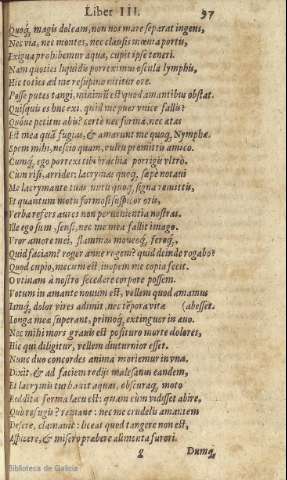 Liber III. 37
Quoq; magis doleam, non nos mare separat ingens,
Nec via, nec montes, nec clausis mœnia portis,
Exigua prohibemur aqua, cupit ipse teneri.
Nam quoties liquidis porreximus oscula lymphis,
Hic toties ad me resupino nititur ore.
Posse putes tangi, minimũ est quod amantibus obstat.
Quisquis es huc exi. quid me puer vnice fallis?
Quòue petitus abis? certè nec forma, nec ætas
Est mea quã fugias, & amarunt me quoq; Nymphæ.
Spem mihi, nescio quam, vultu promittis amico.
Cumq; ego porrexi tibi brachia porrigis vltrò.
Cum risi, arrides: lacrymas quoq; sæpe notaui
Me lacrymante tuas. nutu quoq; signa remittis,
Et quantum motu formosi suspicor oris,
Verba refers aures non peruenientia nostras.
Iste ego sum, sensi, nec me mea fallit imago.
Vror amore mei, flammas moueoq; feroq;,
Quid faciam? roger anne rogem? quid deinde rogabo?
Quod cupio, mecum est, inopem me copia fecit.
O vtinam à nostro secedere corpore possem.
Votum in amante nouum est, vellem quod amamus
Iamq; dolor vires adimit, nec tẽpora vitæ (abesset.
Longa meæ superant, primoq; extinguor in æuo.
Nec mihi mors grauis est posituro morte dolores,
Hic qui diligitur, vellem diuturnior esset.
Nunc duo concordes anima moriemur in vna.
Dixit, & ad faciem redijt malesanus eandem,
Et lacrymis turbauit aquas, obscuraq; moto
Reddita forma lacu est: quam cùm vidisset abire,
Quò refugis? remane: nec me crudelis amantem
Desere, clamauit: liceat quod tangere non est,
Aspicere, & misero præbere alimenta furori.
Dumq;
Biblioteca de Galicia